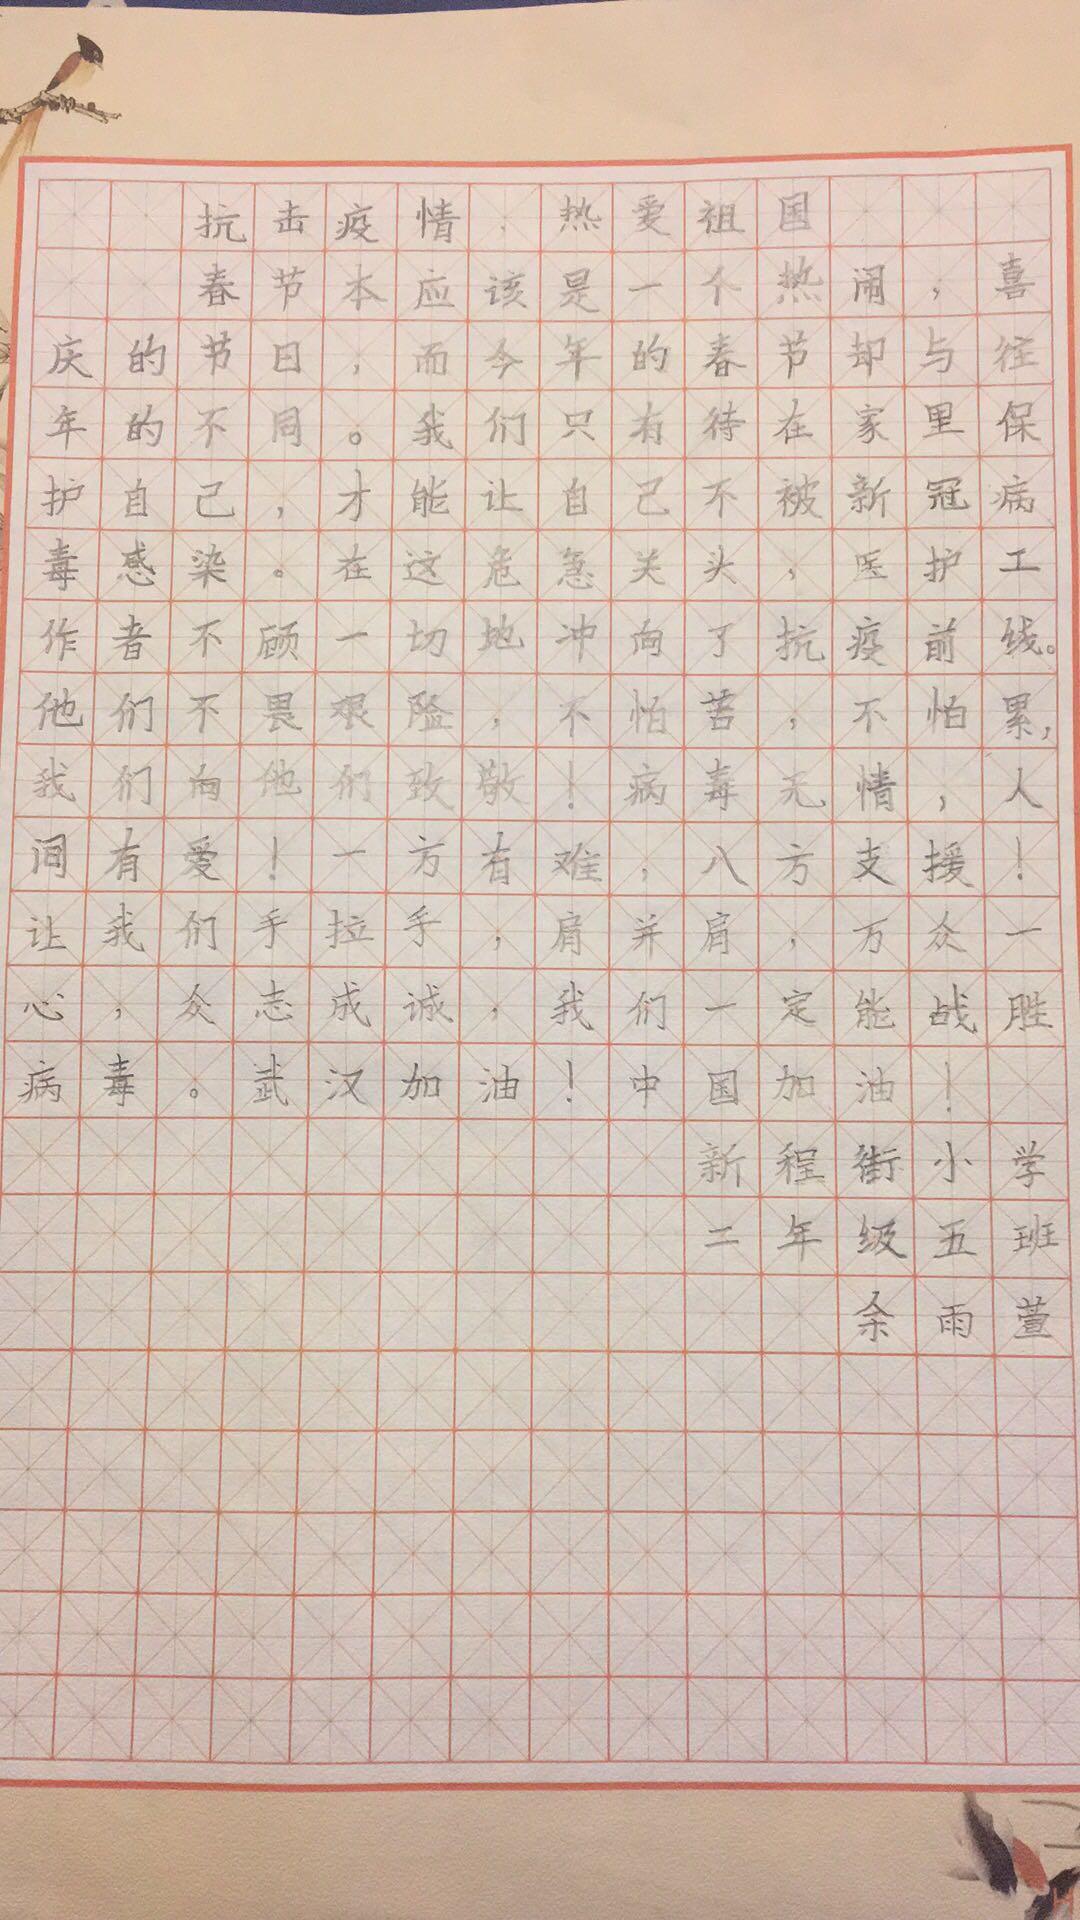 抗击疫情，热爱祖国
春节本应该是一个热闹，喜
庆的节日，而今年的春节却与往
年的不同。我们只有待在家里保
护自己，才能让自己不被新冠病
毒感染。在这危急关头，医护工
作者不顾一切地冲向了抗疫前线。
他们不畏艰险，不怕苦，不怕累，
我们向他们致敬！病毒无情，人
间有爱！一方有难，八方支援！
让我们手拉手，肩并肩，万众一
心，众志成诚，我们一定能战胜
病毒。武汉加油！中国加油！
新程街小学
二年级五班
余雨萱